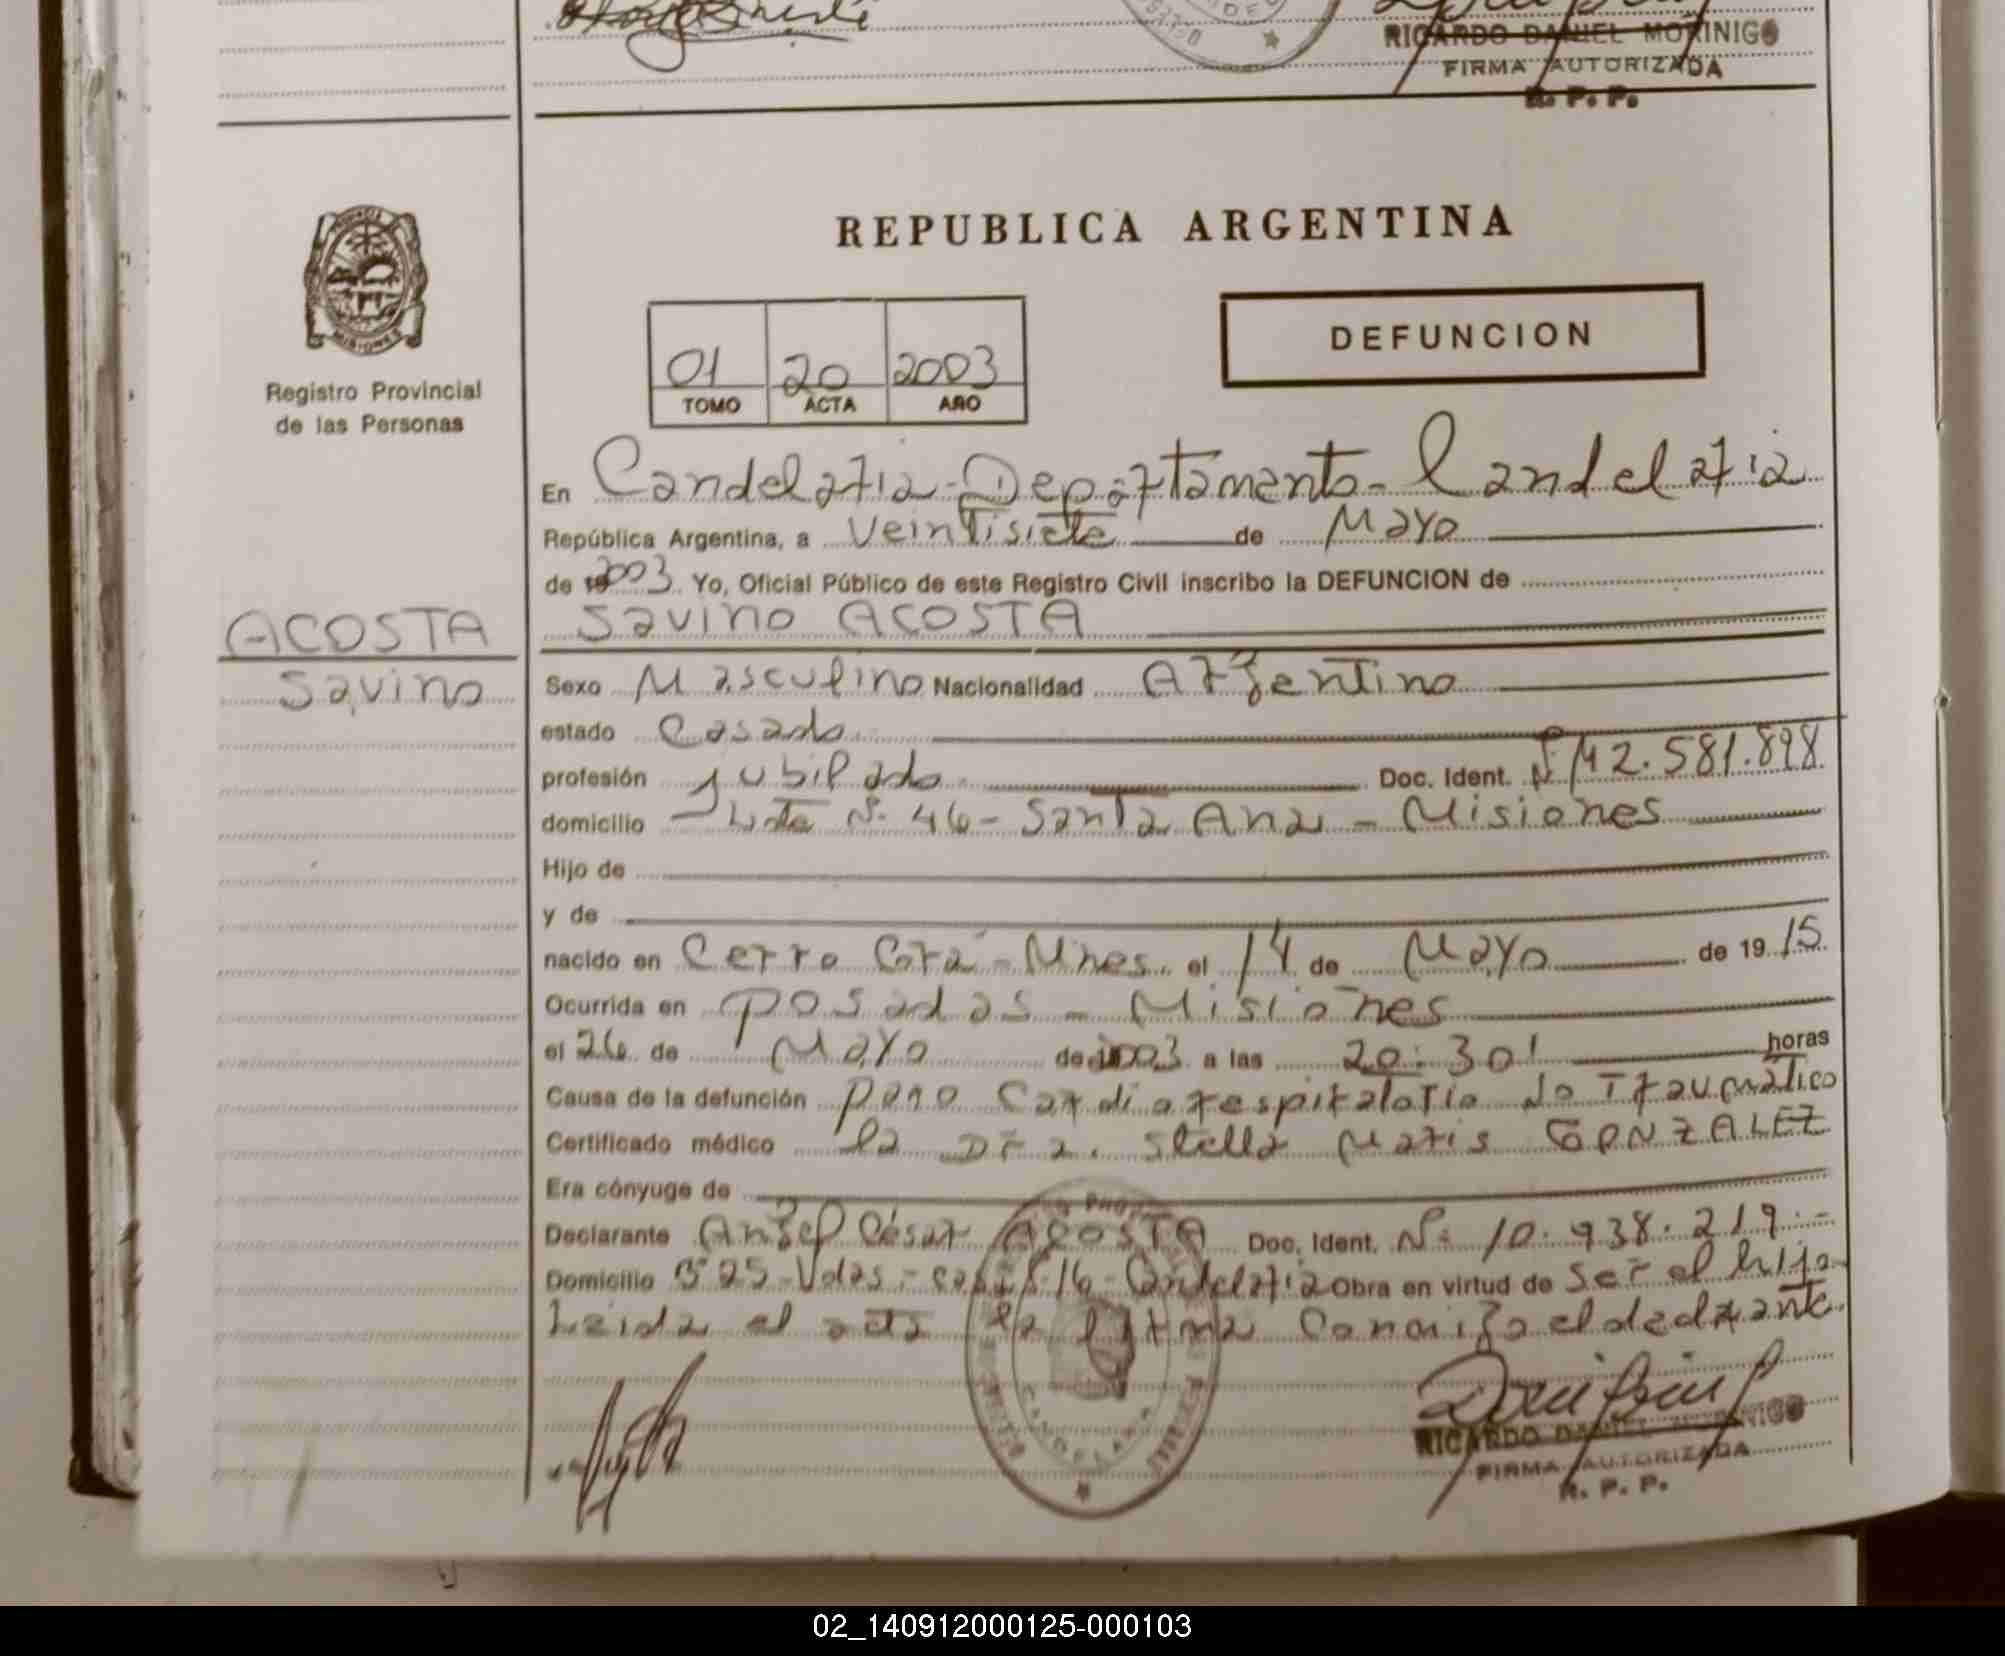 RICARDO DANIEL MORINIGO
FIRMA AUTORIZADA
R. P. P.
MISIONES
Registro Provincial
de las Personas
REPUBLICA ARGENTINA
01 20 2003
TOMO ACTA AÑO
DEFUNCION
En Candelaria - Departamento - Candelaria
República Argentina, a Veintisiete de Mayo
de 2003 Yo, Oficial Público de este Registro Civil inscribo la DEFUNCION de
Savino ACOSTA
ACOSTA
Savino
Sexo Masculino Nacionalidad Argentino
estado Casado
profesión Jubilado Doc. Ident. Nº M 2.581.898
domicilio Nº 46 - Santa Ana - Misiones
Hijo de
y de
nacido en Cerro Corá - Mnes. el 14 de Mayo de 1915
Ocurrida en Posadas - Misiones
el 26 de Mayo de 2003 a las 20:30' horas
Causa de la defunción Paro Cardiorespiratorio No Traumático
Certificado médico la Dra. Stella Maris GONZALEZ
Era cónyuge de
Declarante Angel César ACOSTA Doc. Ident. Nº 10.938.219.-
Domicilio 325 Vdas. - casa Nº 16 - Candelaria Obra en virtud de ser el hijo
Leida el acta la firma conmigo el declarante.
CANDELARIA
RICARDO DANIEL MORINIGO
FIRMA AUTORIZADA
R. P. P.
02_140912000125-000103